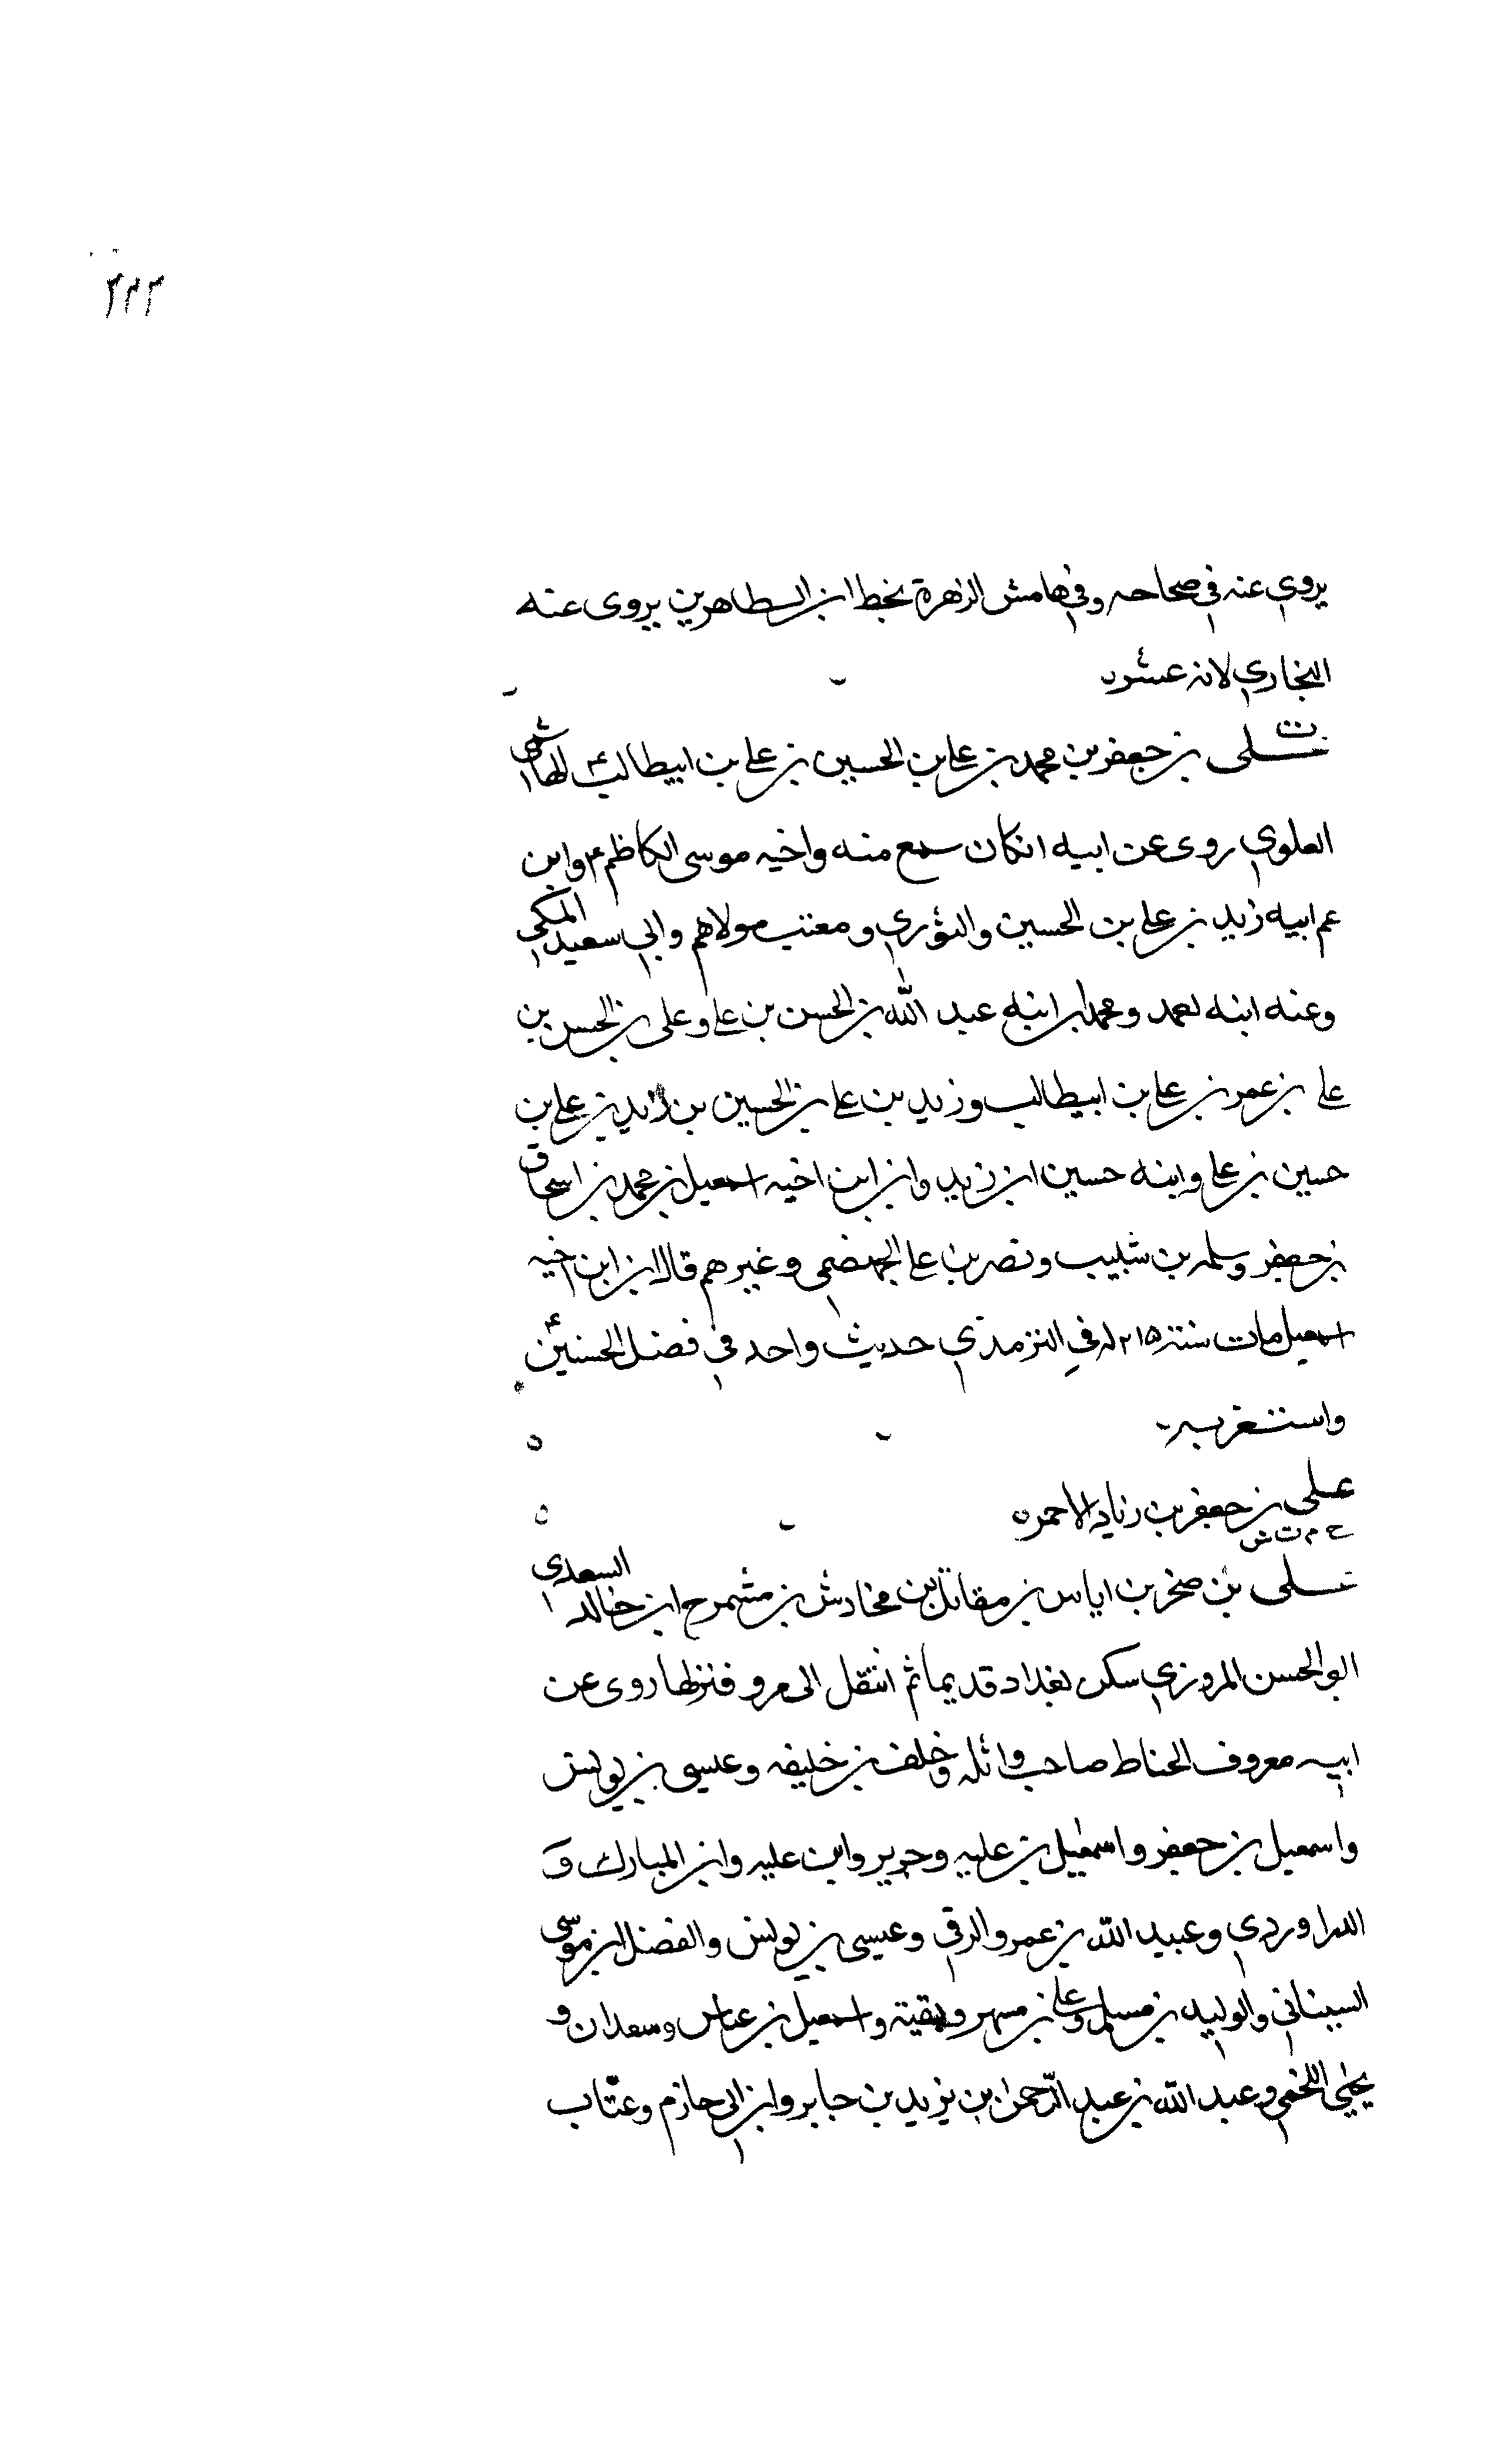 ٢٢٢
يروي عنه في صحاحه وفي هامش الزهرة بخط ابن الطاهرين يروى عنه
البخاري لانه عشره
ت
علي بن جعفر بن محمد بن علي بن الحسين بن علي بن ابيطالب ع الهاشمي
العلوي روى عن ابيه انكان سمع منه واخيه موسى الكاظم ع وابن
عم ابيه زيد بن علي بن الحسين والثوري ومعتب مولاهم وابي سعيد المكي
وعنه ابنه احمد ومحمد ابن ابنه عبد الله بن الحسن بن علي وعلي بن الحسن بن
علي بن عمر بن علي بن ابيطالب وزيد بن علي بن الحسين بن زيد بن علي بن
حسين بن علي وابنه حسين ابن زيد وابن ابن اخيه اسمعيل بن محمد بن اسحاق
بن جعفر وسلمه بن شبيب ونصر بن علي الجهضمي وغيرهم قال ابن ابن اخيه
اسمعيل مات سنة ٢١٥ له في الترمذي حديث واحد في فضل الحسنين ع
واستغربه
علي بن جعفر بن زياد الاحمره
خ م ت س
علي بن حجر بن اياس بن مقاتل بن مخادش بن مشمرج ابن خالد السعدي
ابو الحسن المروزي سكن بغداد قديما ثم انتقل الى مرو فنزلها روى عن
ابيه معروف الخياط صاحب واثله وخلف بن خليفه وعيسى بن يونس
واسمعيل بن جعفر واسمعيل بن عليه وجرير وابن عليه وابن المبارك و
الدراوردي وعبيد الله بن عمرو الرقي وعيسى بن يونس والفضل ابن موسى
السيناني والوليد بن مسلم وعلي بن مسهر وبقية واسمعيل بن عياش وسعدان و
يحيي اللخمي وعبد الله بن عبد الرحمن بن يزيد بن جابر وابن ابي حازم وعتاب